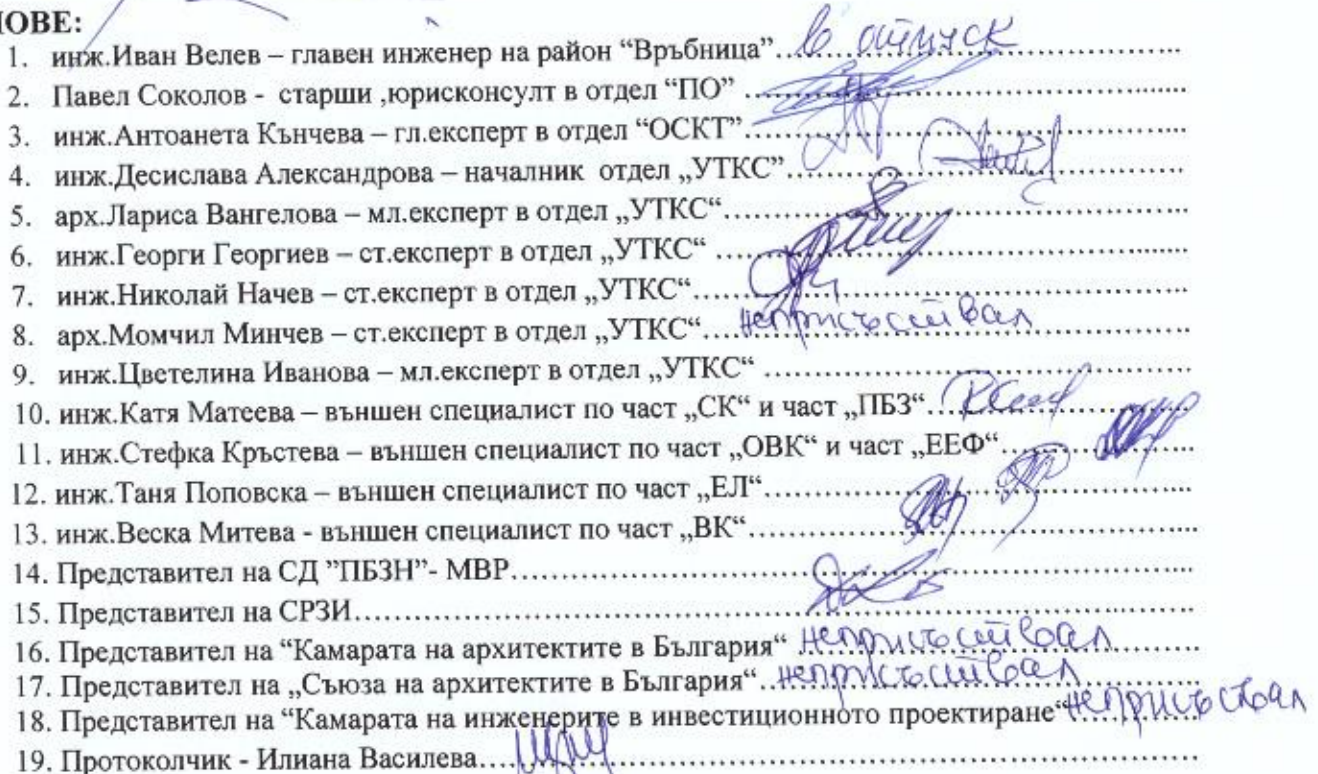 НОВЕ:
1. инж.Иван Велев – главен инженер на район “Връбница” в отпуск
2. Павел Соколов - старши ,юрисконсулт в отдел “ПО”
3. инж.Антоанета Кънчева – гл.експерт в отдел “ОСКТ”
4. инж.Десислава Александрова – началник отдел „УТКС”
5. арх.Лариса Вангелова – мл.експерт в отдел „УТКС“
6. инж.Георги Георгиев – ст.експерт в отдел „УТКС“
7. инж.Николай Начев – ст.експерт в отдел „УТКС“
8. арх.Момчил Минчев – ст.експерт в отдел „УТКС“ неприсъствал
9. инж.Цветелина Иванова – мл.експерт в отдел „УТКС“
10. инж.Катя Матеева – външен специалист по част „СК“ и част „ПБЗ“
11. инж.Стефка Кръстева – външен специалист по част „ОВК“ и част „ЕЕФ“
12. инж.Таня Поповска – външен специалист по част „ЕЛ“
13. инж.Веска Митева - външен специалист по част „ВК“
14. Представител на СД ”ПБЗН”- МВР
15. Представител на СРЗИ
16. Представител на “Камарата на архитектите в България“ неприсъствал
17. Представител на „Съюза на архитектите в България“ неприсъствал
18. Представител на “Камарата на инженерите в инвестиционното проектиране“ неприсъствал
19. Протоколчик - Илиана Василева